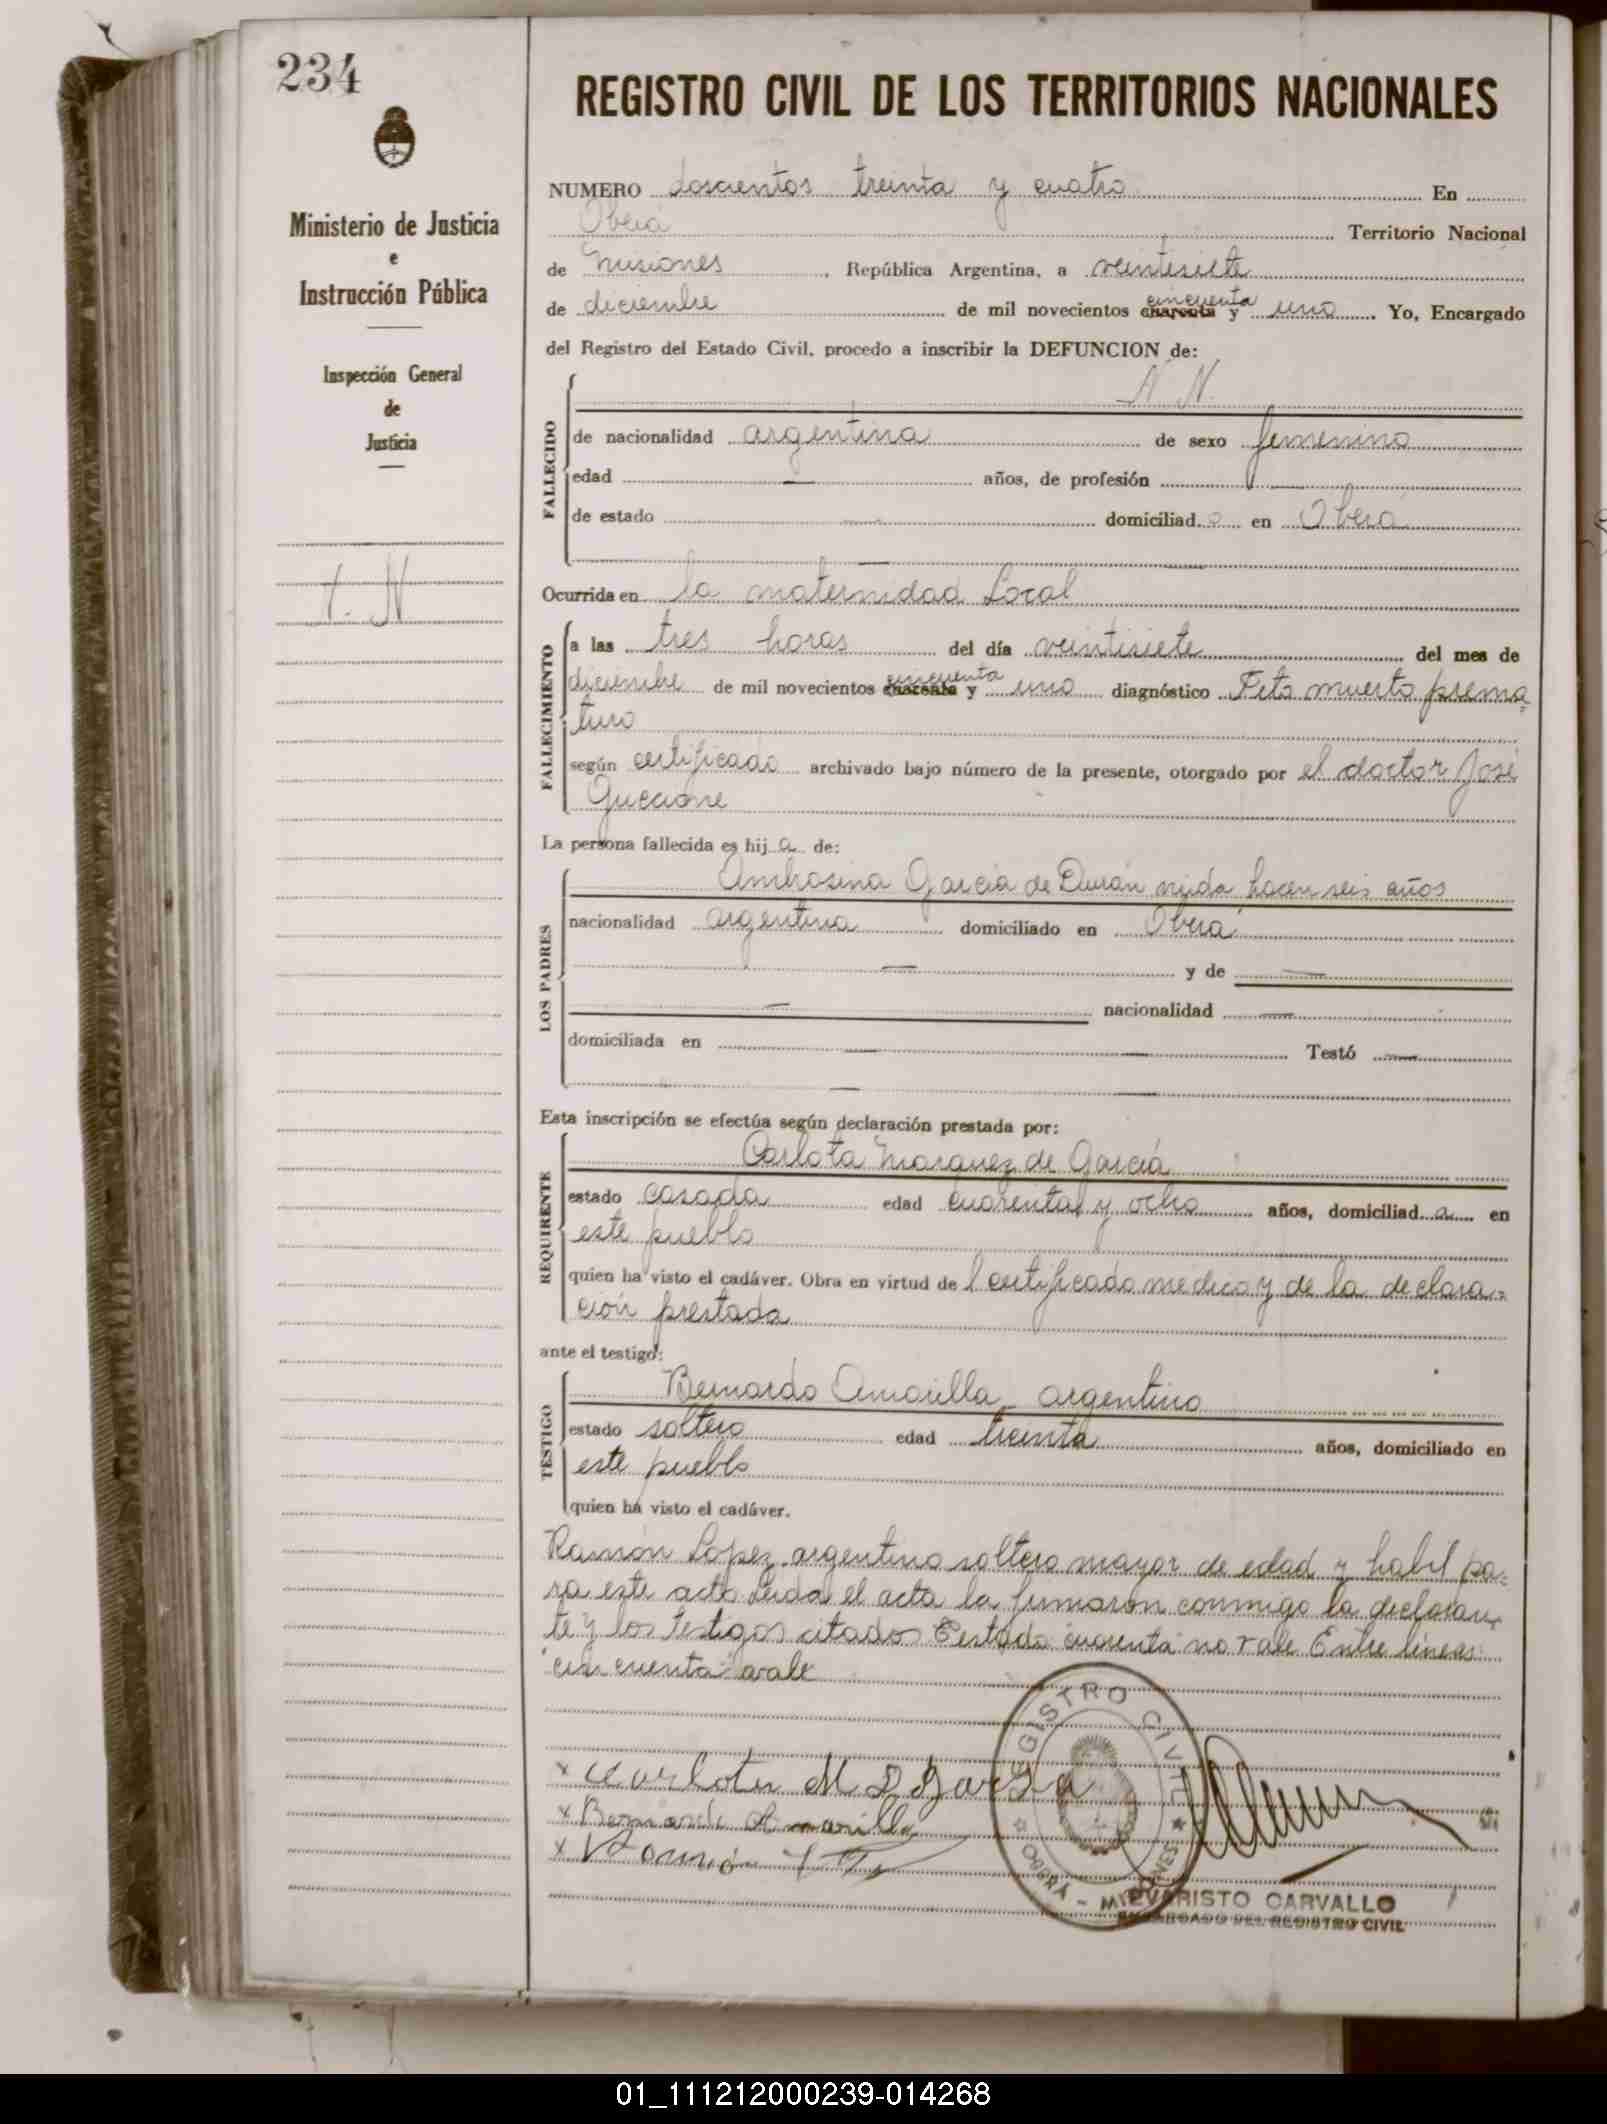 234
Ministerio de Justicia
e
Instrucción Pública
Inspección General
de
Justicia
N. N
REGISTRO CIVIL DE LOS TERRITORIOS NACIONALES
NUMERO doscientos treinta y cuatro En
Oberá Territorio Nacional
de Misiones, República Argentina, a veintisiete
de diciembre de mil novecientos cuarenta cincuenta y uno. Yo, Encargado
del Registro del Estado Civil, procedo a inscribir la DEFUNCION de:
N. N.
FALLECIDO
de nacionalidad argentina de sexo femenino
edad — años, de profesión —
de estado — domiciliad o en Oberá
Ocurrida en la maternidad Local
FALLECIMIENTO
a las tres horas del día veintisiete del mes de
diciembre de mil novecientos cuarenta cincuenta y uno diagnóstico Feto muerto prema=
turo
según certificado archivado bajo número de la presente, otorgado por el doctor José
Guccione
La persona fallecida es hij a de:
LOS PADRES
Ambrosina Garcia de Durán viuda hacen seis años
nacionalidad argentina domiciliado en Oberá
— y de —
— nacionalidad —
domiciliada en — Testó —
Esta inscripción se efectúa según declaración prestada por:
REQUIRENTE
Carlota Marquez de Garciá
estado casada edad cuarenta y ocho años, domiciliad a en
este pueblo
quien ha visto el cadáver. Obra en virtud de l certificado medico y de la declara=
ción prestada
ante el testigo:
TESTIGO
Bernardo Amarilla argentino
estado soltero edad treinta años, domiciliado en
este pueblo
quien ha visto el cadáver.
Ramón López argentino soltero mayor de edad y habil pa=
ra este acto Leida el acta la firmaron conmigo la declaran=
te y los testigos citados Testado: cuarenta no vale Entre lineas:
"cincuenta" vale
x Carlota M D Garcia
x Bernardo Amarilla
x Ramón
REGISTRO CIVIL
OBERA - MISIONES
EVARISTO CARVALLO
ENCARGADO DEL REGISTRO CIVIL
01_111212000239-014268